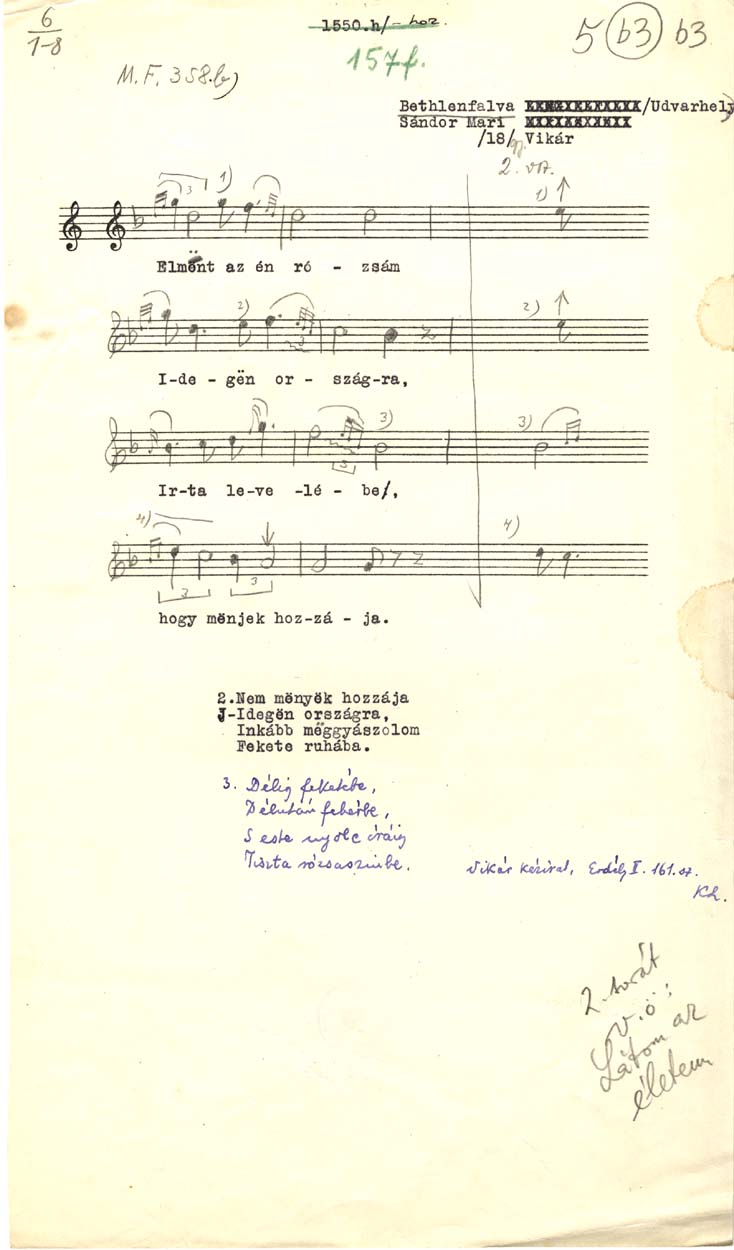 6
1-8
1550.h/- hoz.
157f.
5 (b3) b3
M.F. 358.b)
Bethlenfalva /Udvarhely
Sándor Mari
/18/ Vikár
2. vsz.
3 1) 1)
Elmënt az én ró - zsám
2) 3 2)
I-de - gën or - szág-ra,
3) 3 3)
Ir-ta le-ve -lé - be/,
4) 3 3 4)
hogy mënjek hoz-zá - ja.
2.Nem mënyëk hozzája
J-Idegën országra,
Inkább mëggyászolom
Fekete ruhába.
3. Délig feketébe,
Délután fehérbe,
S este nyolc óráig
Tiszta rózsaszinbe.
Vikár kézirat, Erdély II. 161. sz.
KL.
2. sorát
v.ö:
Látom az
életem